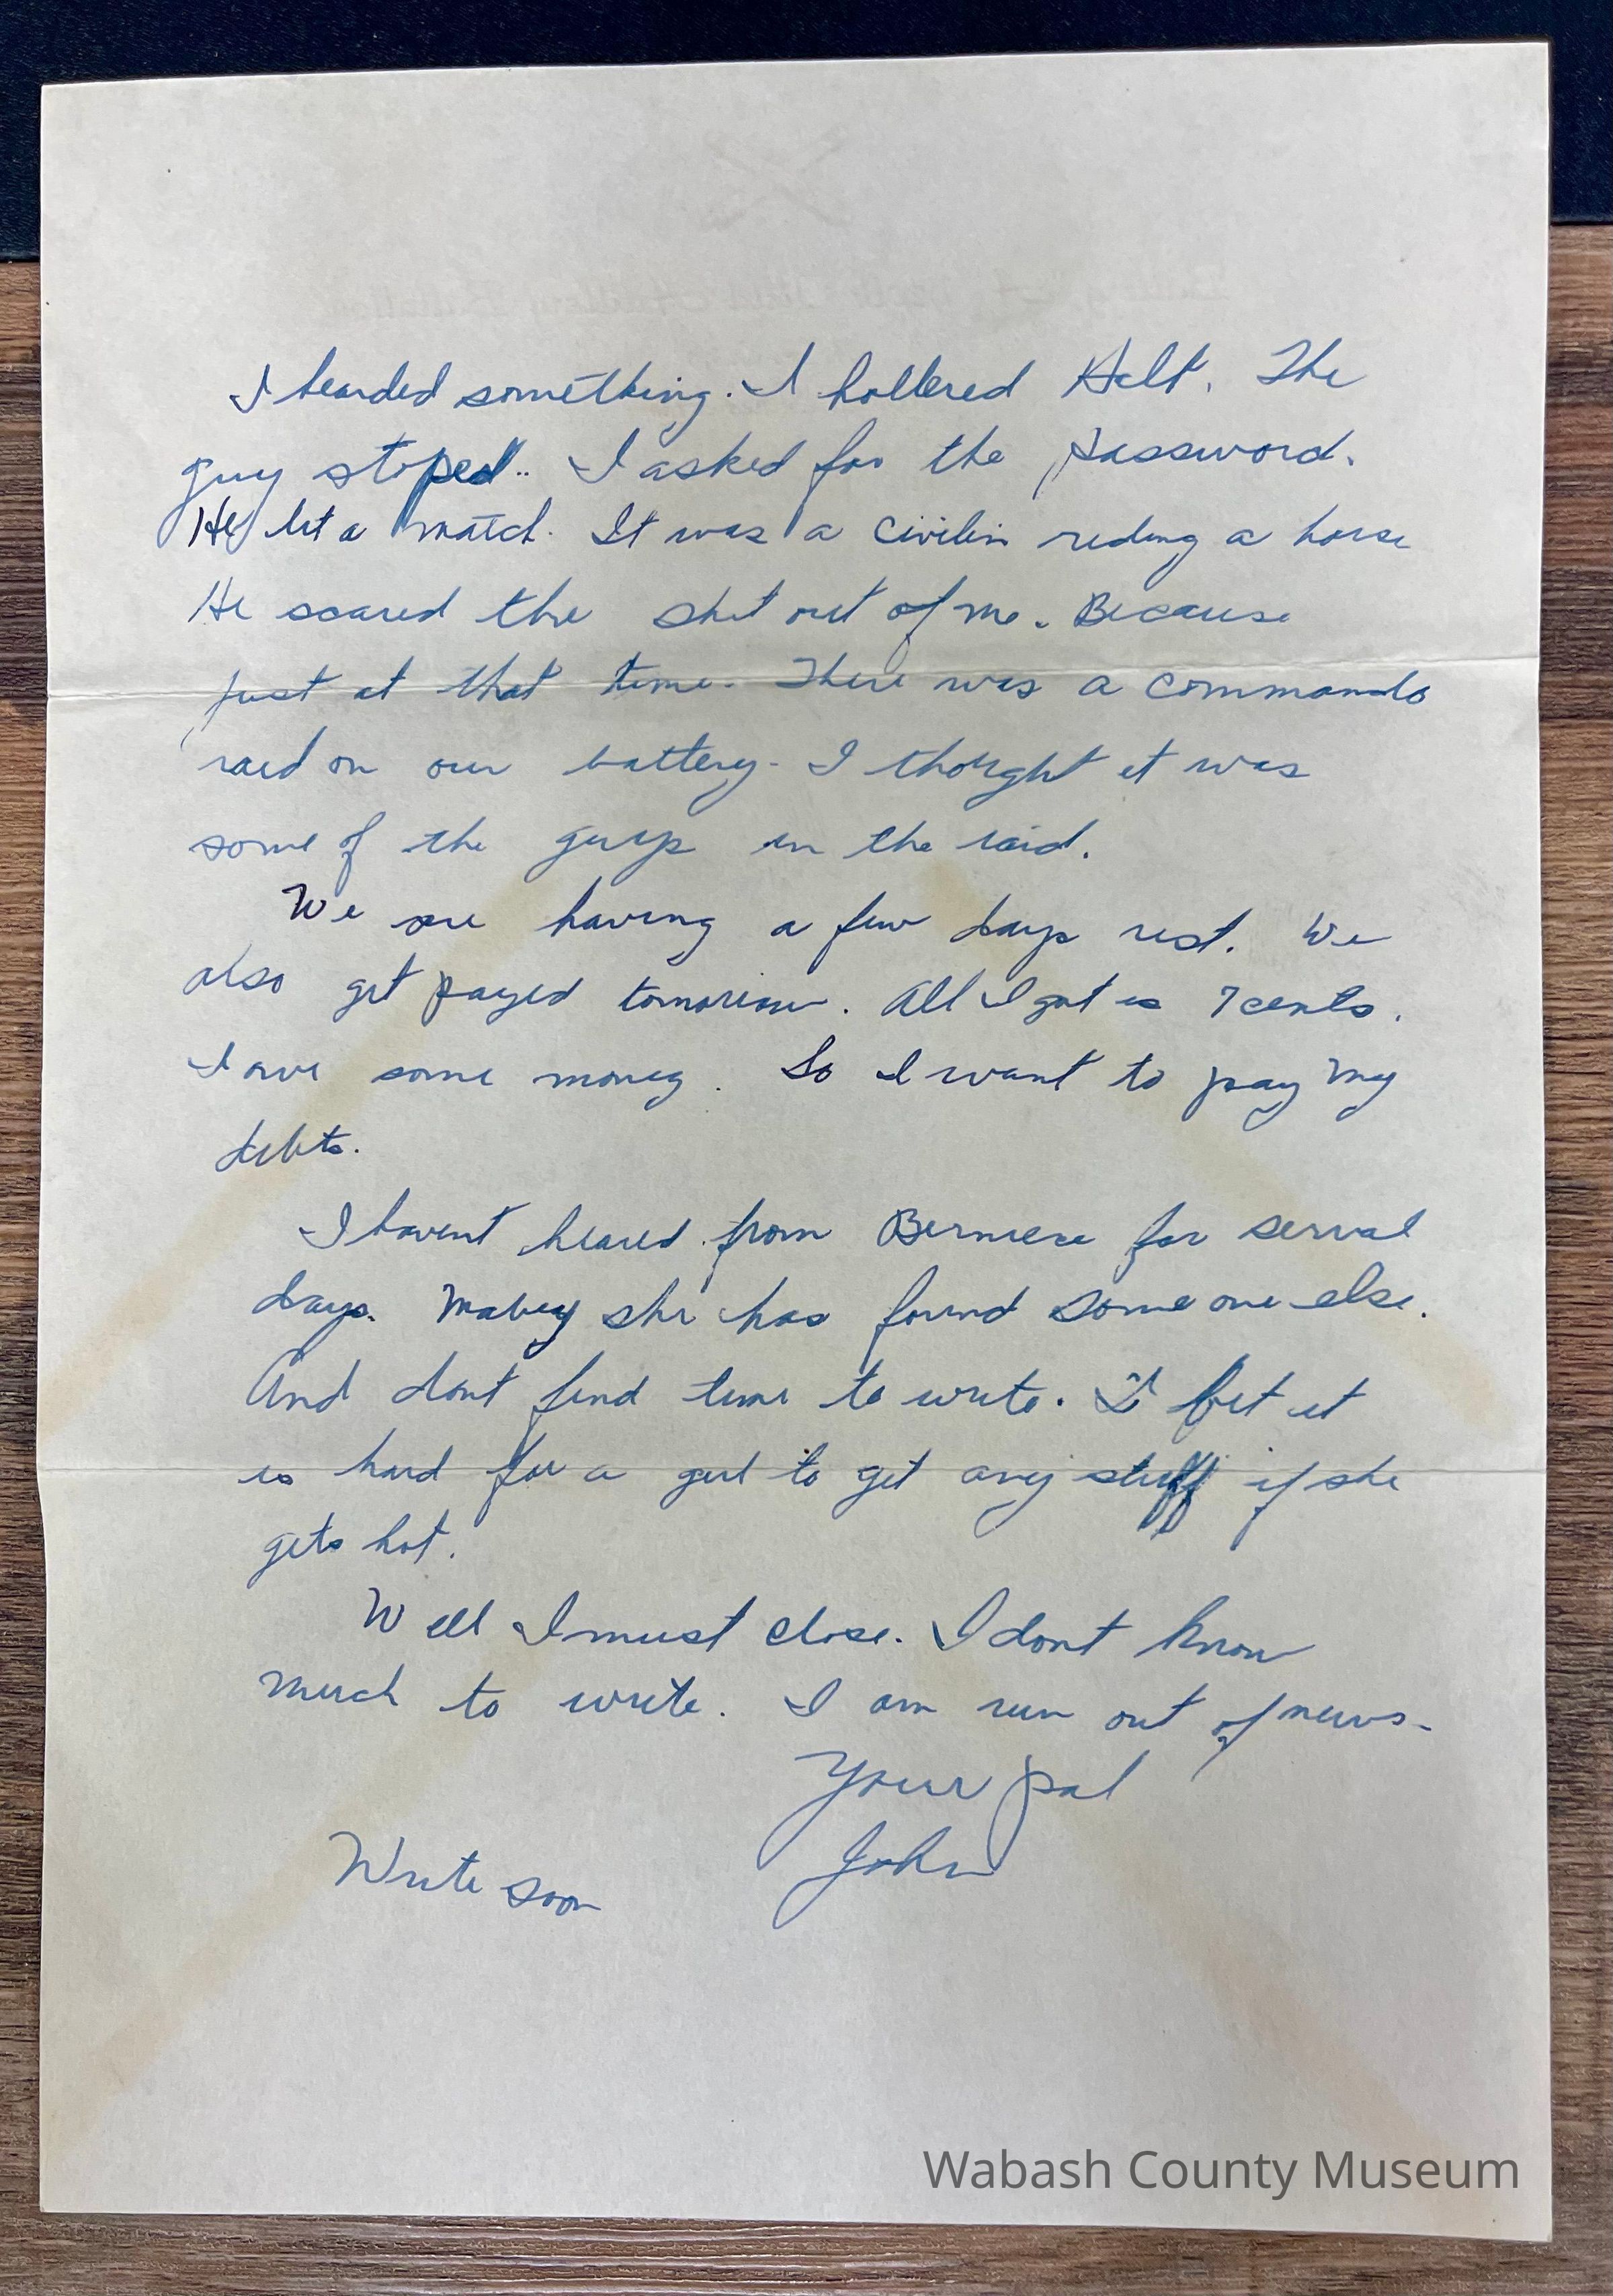 I hearded something. I hollered Halt. The
guy stoped.. I asked for the password.
He lit a match. It was a civilin riding a horse
He scared the shit out of me. Because
just at that time. There was a commando
raid on our battery. I thought it was
some of the guys in the raid.
We are having a few days rest. We
also get payed tomorrow. All I got is 7 cents.
I owe some money. So I want to pay my
debts.
I havent heared from Berniece for serval
days. Mabey she has found some one else.
And dont find time to write. I bet it
is hard for a girl to get any stuff if she
gets hot.
Well I must close. I dont know
much to write. I am run out of news.
Your pal
John
Write soon
Wabash County Museum